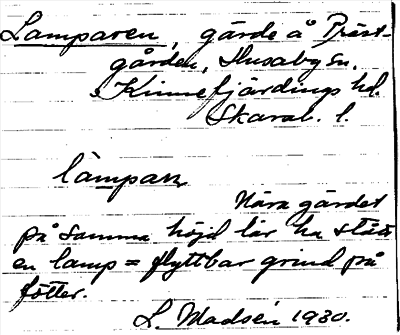 Lamparen, gärde å Präst-
gården, Husaby sn.
Kinnefjärdings hd.
Skarab. l.
làmparn
Nära gärdet
på samma höjd lär ha stått
en lamp = flyttbar grind på
fötter.
L. Madsén 1930.